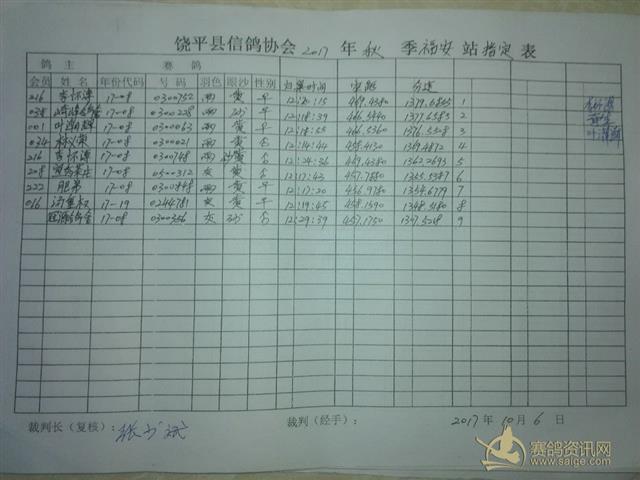 饶平县信鸽协会 2017 年 秋 季 福安 站 指定 表
鸽 主 赛 鸽
会员 姓名 年份代码 号码 羽色 眼沙 性别 归巢时间 实距 分速
216 李怀谭 17-08 0300752 雨 黄 12:20:15 469.4380 1379.6865 1
038 17-08 0300228 雨 砂 12:18:39 466.5440 1377.6583 2
001 叶潮辉 17-08 0300063 雨 黄 12:18:55 466.5360 1376.5528 3
034 17-08 0300021 雨 黄 12:14:44 458.4130 1369.4872 4
216 李怀谭 17-08 0300748 雨 黄 12:24:36 469.4380 1362.2693 5
208 17-08 0500312 灰 黄 12:17:43 457.7880 6
222 17-08 0300848 雨 黄 12:17:20 456.9780 1354.6779 7
016 17-19 0244781 灰 黄 12:19:45 458.1590 1348.5180 8
17-08 0300356 灰 砂 12:29:39 457.1750 9
裁判长（复核）： 张少斌 裁判（经手）： 2017 年 10 月 6 日
赛鸽资讯网
www.saige.com